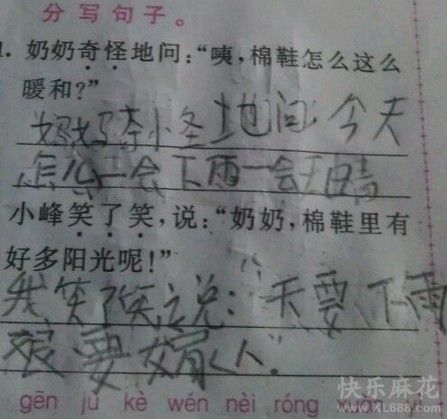 分写句子。
1. 奶奶奇怪地问:“咦,棉鞋怎么这么
暖和?”
妈妈奇怪地问:今天
怎么一会下雨一会天晴
小峰笑了笑,说:“奶奶,棉鞋里有
好多阳光呢!”
我笑了笑说:“天要下雨
娘要嫁人。”
gēn jù kè wén nèi róng xuǎn
快乐麻花
www.XL688.com